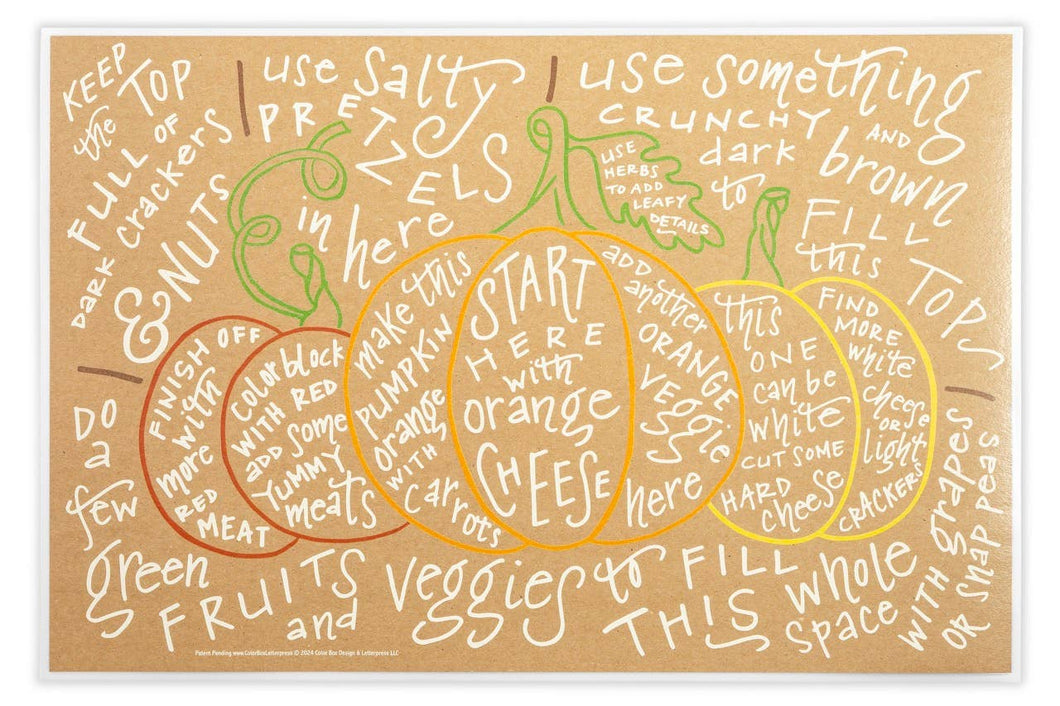 KEEP
the TOP
FULL OF
DARK crackers
& NUTS
use salty
PRETZELS
in here
use something
CRUNCHY AND
dark brown
to FILL
this TOPS
USE
HERBS
TO ADD
LEAFY
DETAILS
FINISH OFF
with
more
RED
MEAT
color block
WITH RED
ADD some
YUMMY
meats
make this
PUMPKIN
orange
WITH
carrots
START
HERE
with
orange
CHEESE
ADD
another
ORANGE
veggie
here
this
ONE
can be
white
CUT SOME
HARD
cheese
FIND
MORE
white
cheese
OR
light
CRACKERS
DO
a
few
green
FRUITS
and
veggies to FILL
THIS whole
space
WITH grapes
OR SNAP PEAS
Patent Pending www.ColorBoxLetterpress © 2024 Color Box Design & Letterpress LLC